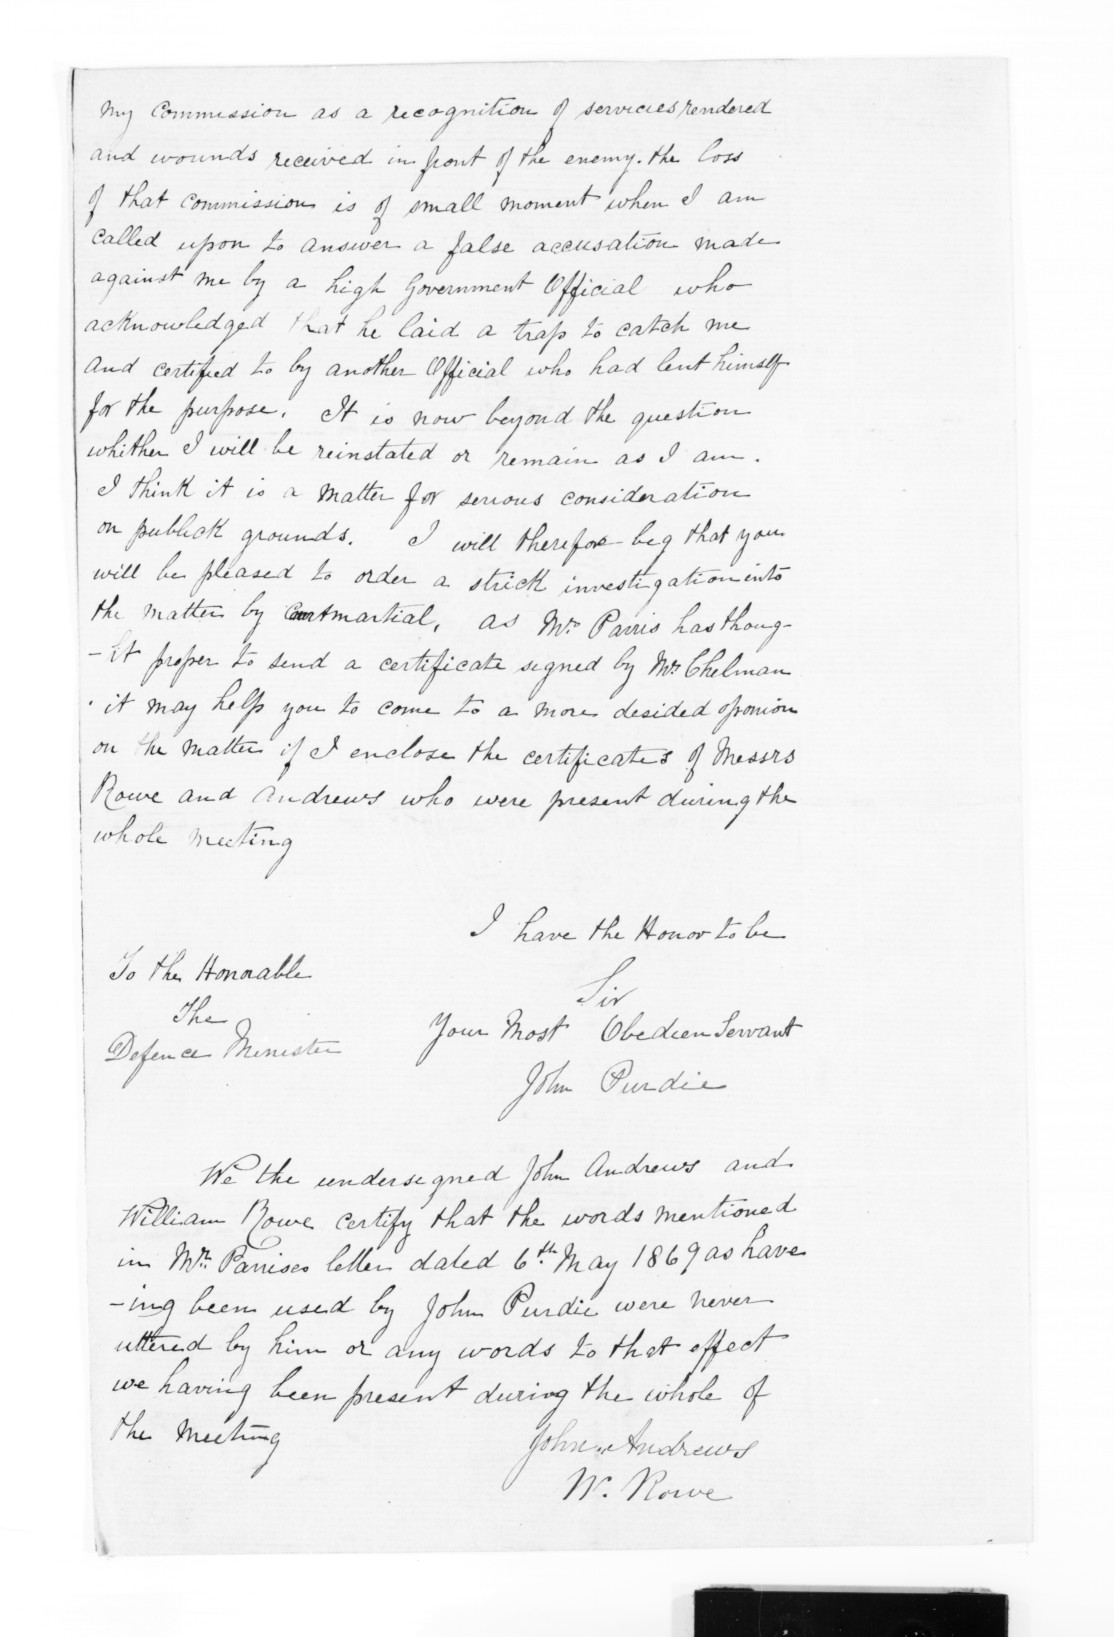 My Commission as a recognition of servicies rendered
and wounds received in front of the enemy. the loss
of that commission is of small moment when I am
called upon to answer a false accusation made
against me by a high Government Official who
acknowledged that he laid a trap to catch me
and certified to by another Official who had lent himself
for the purpose. It is now beyond the question
whither I will be reinstated or remain as I am.
I think it is a matter for serious consideration
on publick grounds. I will therefore beg that you
will be pleased to order a strick investigation into
the matter by Courtmartial, as Mr. Parris has thoug-
-ht proper to send a certificate signed by Mr. Chelman
it may help you to come to a more desided oponion
on the matter if I enclose the certificates of Messrs
Rowe and Andrews who were present during the
whole meeting
I have the Honor to be
To the Honorable
Sir
The
Your Most Obedien Servant
Defence Minister
John Purdie
We the undersigned John Andrews and
William Rowe certify that the words mentioned
in Mr. Parrises letter dated 6th May 1869 as have
-ing been used by John Purdie were never
uttered by him or any words to that effect
we having been present during the whole of
the meeting
John Andrews
W. Rowe